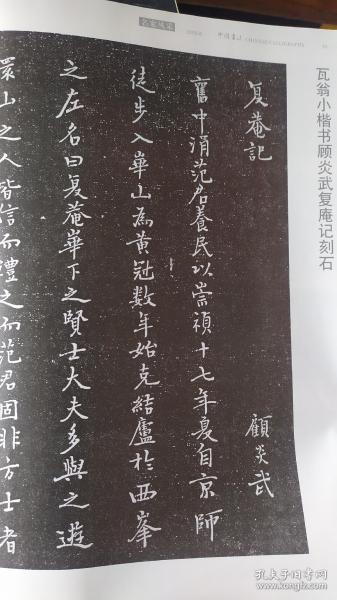 中国书法 CHINESE CALLIGRAPHY
瓦翁小楷书顾炎武复庵记刻石
复菴記 顧炎武
舊中涓范君養民以崇禎十七年夏自京師
徒步入華山為黃冠数年始克結廬於西峯
之左名曰复菴華下之賢士大夫多與之遊
環山之人皆信而禮之而范君固非方士者
孔夫子旧书网